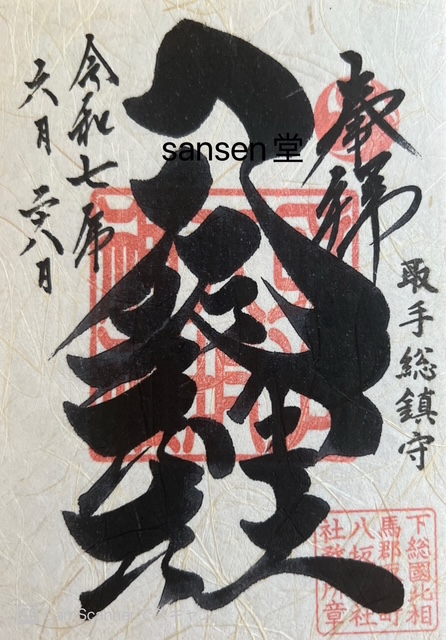 奉拝
取手総鎮守
八坂神社
令和七年
六月二八日
sansen堂
下総國北相
馬郡取手町
八坂神社
社務所章